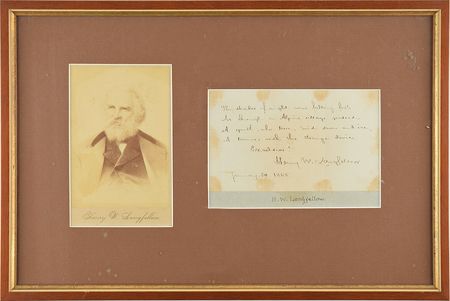 The shades of night were falling fast,
As through an Alpine village passed
A youth, who bore, 'mid snow and ice,
A banner with the strange device
Excelsior!
Henry W. Longfellow
January
H. W. Longfellow
Henry W. Longfellow